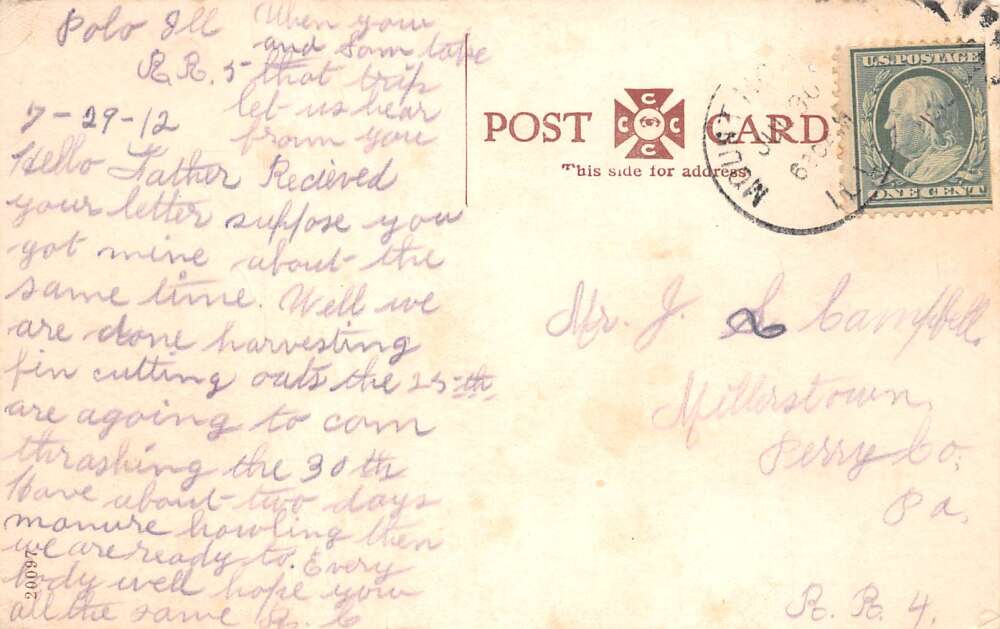 Polo Ill
R. R. 5
7-29-12
When your
and Som take
that trip
let us hear
from you
Hello Father Recieved
your letter suppose you
got mine about the
same time. Well we
are done harvesting
fin cutting oats the 25th
are agoing to com
thrashing the 30th
Have about two days
manure howling then
we are ready to. Every
body well hope your
all the same R. C
20097
POST CARD
This side for address
C C C C
JUL 30
ILL
U.S. POSTAGE
ONE CENT
Mr. J. L Campbell.
Millerstown
Perry Co.
Pa.
R. R. 4.